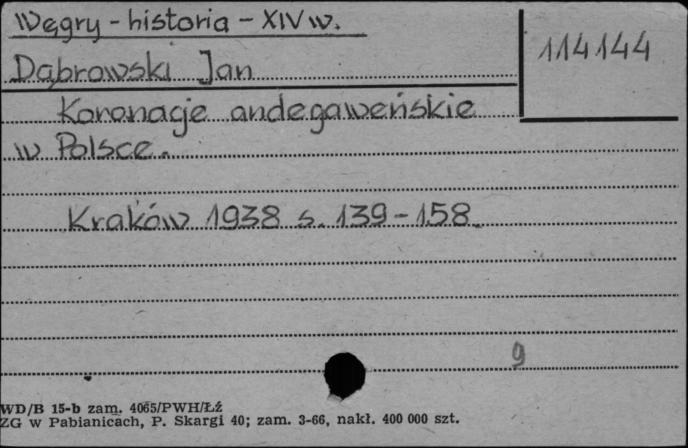 Węgry - historia - XIV w.
114144
Dąbrowski Jan
Koronacje andegaweńskie
w Polsce.
Kraków 1938 s. 139-158.
9
WD/B 15-b zam. 4065/PWH/Łź
ZG w Pabianicach, P. Skargi 40; zam. 3-66, nakł. 400 000 szt.